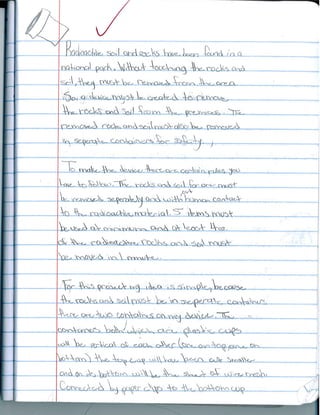 Radioactive soil and rocks have been found in a
national park. Without touching the rocks and
soil, they must be removed from the area
So a device must be created to remove
the rocks and soil from the premises. The
removed rock and soil must also be removed
in seperate containers for safety.
To make the device there are certain rules you
have to follow. The rocks and soil for one must
be removed seperately and with out human contact
to the radioactive material. 5 items must
be used at maximum and at least
of the radioactive rocks and soil must
be moved in 1 minute.
For this project my idea is simple, because
the rocks and soil must be in seperate containers
there are two containers on my device. The
containers both which are plastic cups
will be vertical of each other (one on top one on
bottom) the top cup will have been cut smaller
and on its bottom will be the sheet of wire mesh
Connected by paper clips to the bottom cup